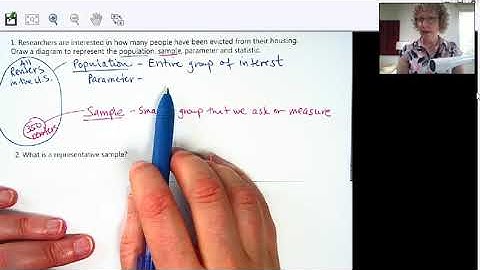 1. Researchers are interested in how many people have been evicted from their housing.
Draw a diagram to represent the population, sample, parameter and statistic.
All
Renters
in the U.S.
Population - Entire group of interest
Parameter -
Sample - group that we ask or measure
350
renters
2. What is a representative sample?